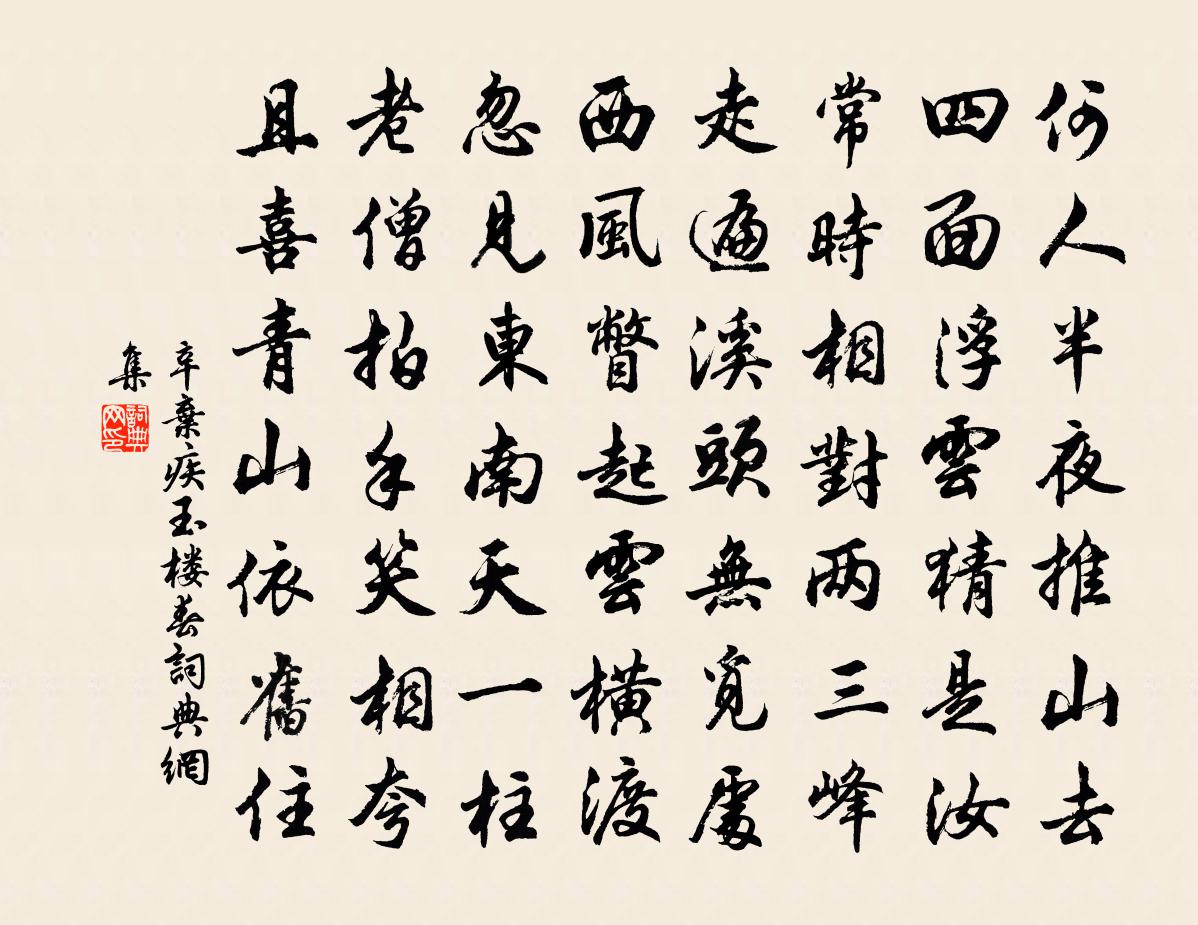 何人半夜推山去
四面浮雲猜是汝
常時相對两三峰
走遍溪頭無覓處
西風瞥起雲橫渡
忽見東南天一柱
老僧拍手笑相夸
且喜青山依舊住
辛棄疾玉楼春詞典網
集
詞典
网印